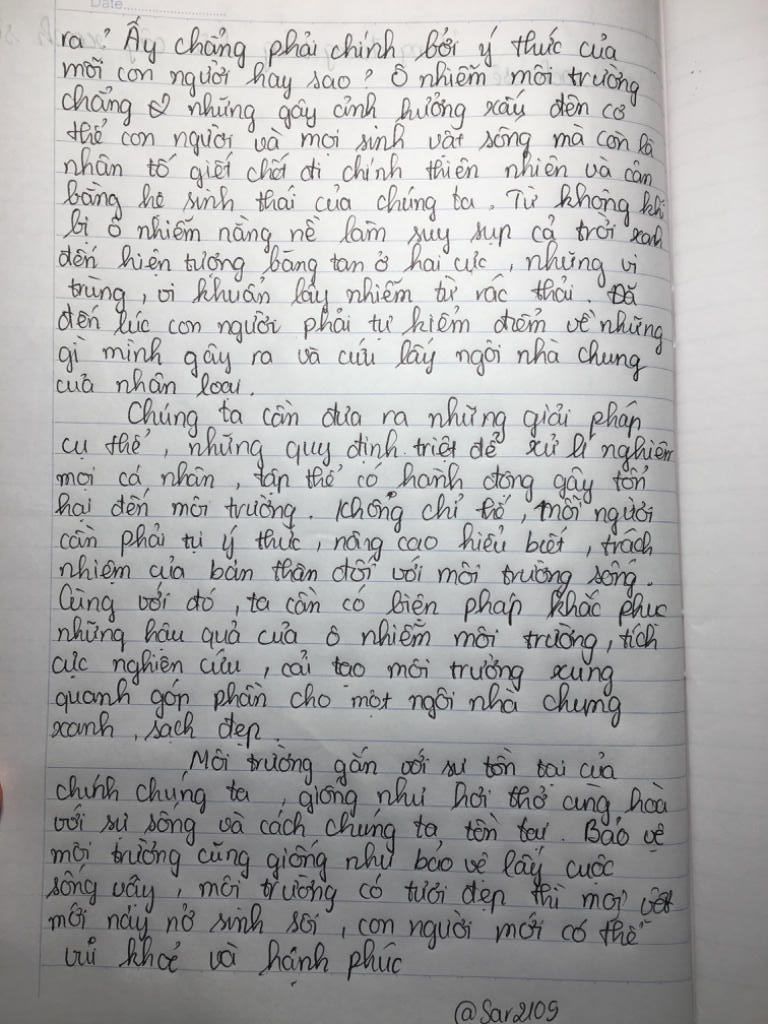 Date
ra? Ấy chẳng phải chính bởi ý thức của
mỗi con người hay sao? Ô nhiễm môi trường
chẳng những gây ảnh hưởng xấu đến cơ
thể con người và mọi sinh vật sống mà còn là
nhân tố giết chết đi chính thiên nhiên và cân
bằng hệ sinh thái của chúng ta. Từ không khí
bị ô nhiễm nặng nề làm suy sụp cả trời xanh
đến hiện tượng băng tan ở hai cực, những vi
trùng, vi khuẩn lây nhiễm từ rác thải. Đã
đến lúc con người phải tự kiểm điểm về những
gì mình gây ra và cứu lấy ngôi nhà chung
của nhân loại.
Chúng ta cần đưa ra những giải pháp
cụ thể, những quy định triệt để xử lí nghiêm
mọi cá nhân, tập thể có hành động gây tổn
hại đến môi trường. Không chỉ thế, mỗi người
cần phải tự ý thức, nâng cao hiểu biết, trách
nhiệm của bản thân đối với môi trường sống.
Cùng với đó, ta cần có biện pháp khắc phục
những hậu quả của ô nhiễm môi trường, tích
cực nghiên cứu, cải tạo môi trường xung
quanh góp phần cho một ngôi nhà chung
xanh, sạch đẹp.
Môi trường gắn với sự tồn tại của
chính chúng ta, giống như hơi thở cùng hoà
với sự sống và cách chúng ta tồn tại. Bảo vệ
môi trường cũng giống như bảo vệ lấy cuộc
sống vậy, môi trường có tươi đẹp thì mọi vật
mới nảy nở sinh sôi, con người mới có thể
vui khoẻ và hạnh phúc
@Sar2109